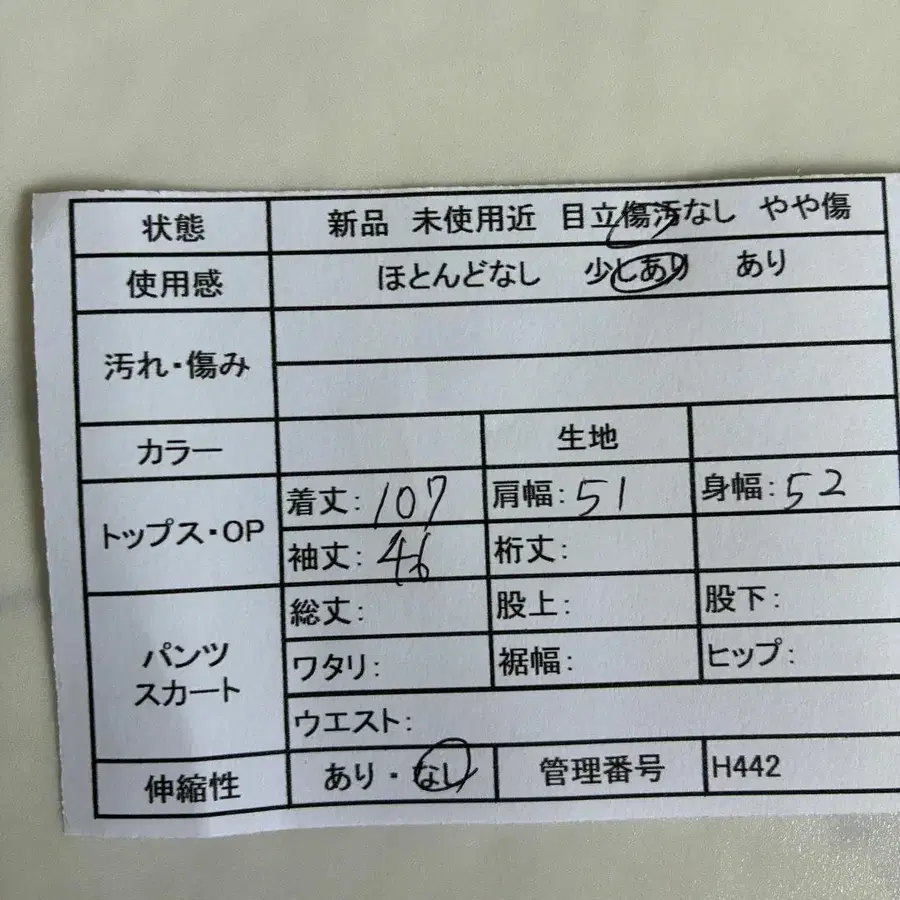 状態 新品 未使用近 目立傷汚なし やや傷
使用感 ほとんどなし 少しあり あり
汚れ・傷み
カラー 生地
トップス・OP 着丈: 107 肩幅: 51 身幅: 52
袖丈: 46 裄丈:
パンツ スカート 総丈: 股上: 股下:
ワタリ: 裾幅: ヒップ:
ウエスト:
伸縮性 あり・なし 管理番号 H442